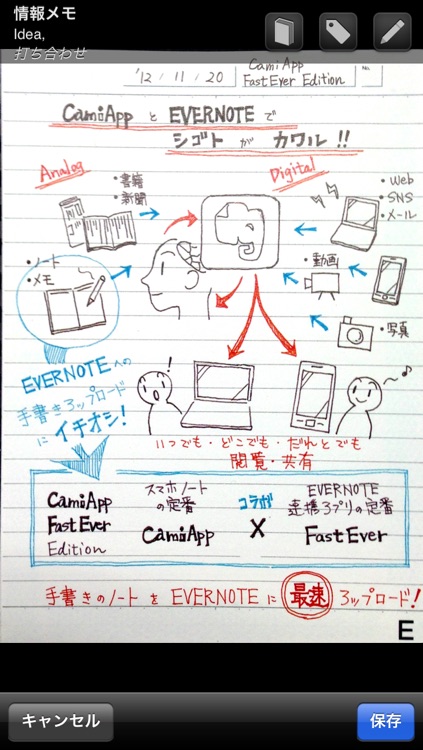 情報メモ
Idea,
打ち合わせ
'12 / 11 / 20
CamiApp
FastEver Edition
No.
CamiApp と EVERNOTE で
シゴト が カワル !!
Analog
Digital
・書籍
・新聞
・Web
・SNS
・メール
・ノート
・メモ
・動画
・写真
!
〜♪
EVERNOTEへの
手書きアップロード
に イチオシ!
いつでも・どこでも・だれとでも
閲覧・共有
CamiApp
FastEver
Edition
スマホノート
の定番
CamiApp
コラボ
X
EVERNOTE
連携アプリの定番
FastEver
手書きのノート を EVERNOTE に 最速 アップロード!
E
キャンセル
保存